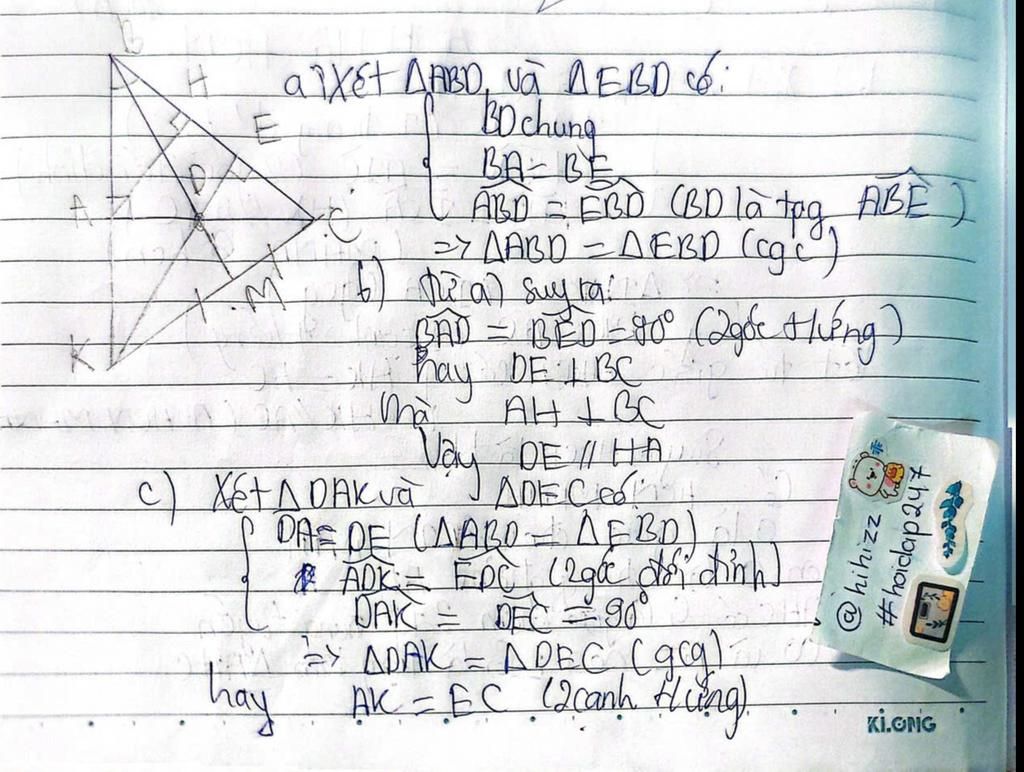 B
H
E
D
A
C
M
K
a) Xét ΔABD và ΔEBD có:
BD chung
BA = BE
ABD = EBD (BD là tpg ABE)
=> ΔABD = ΔEBD (cgc)
b) Từ a) suy ra:
BAD = BED = 90° (2góc tứng)
hay DE ⊥ BC
Mà AH ⊥ BC
Vậy DE // HA
c) Xét ΔDAK và ΔDEC có:
DA = DE (ΔABD = ΔEBD)
ADK = EDC (2góc đối đỉnh)
DAK = DEC = 90°
=> ΔDAK = ΔDEC (gcg)
hay AK = EC (2cạnh tứng)
@hihizz
#hoidap247
KLONG